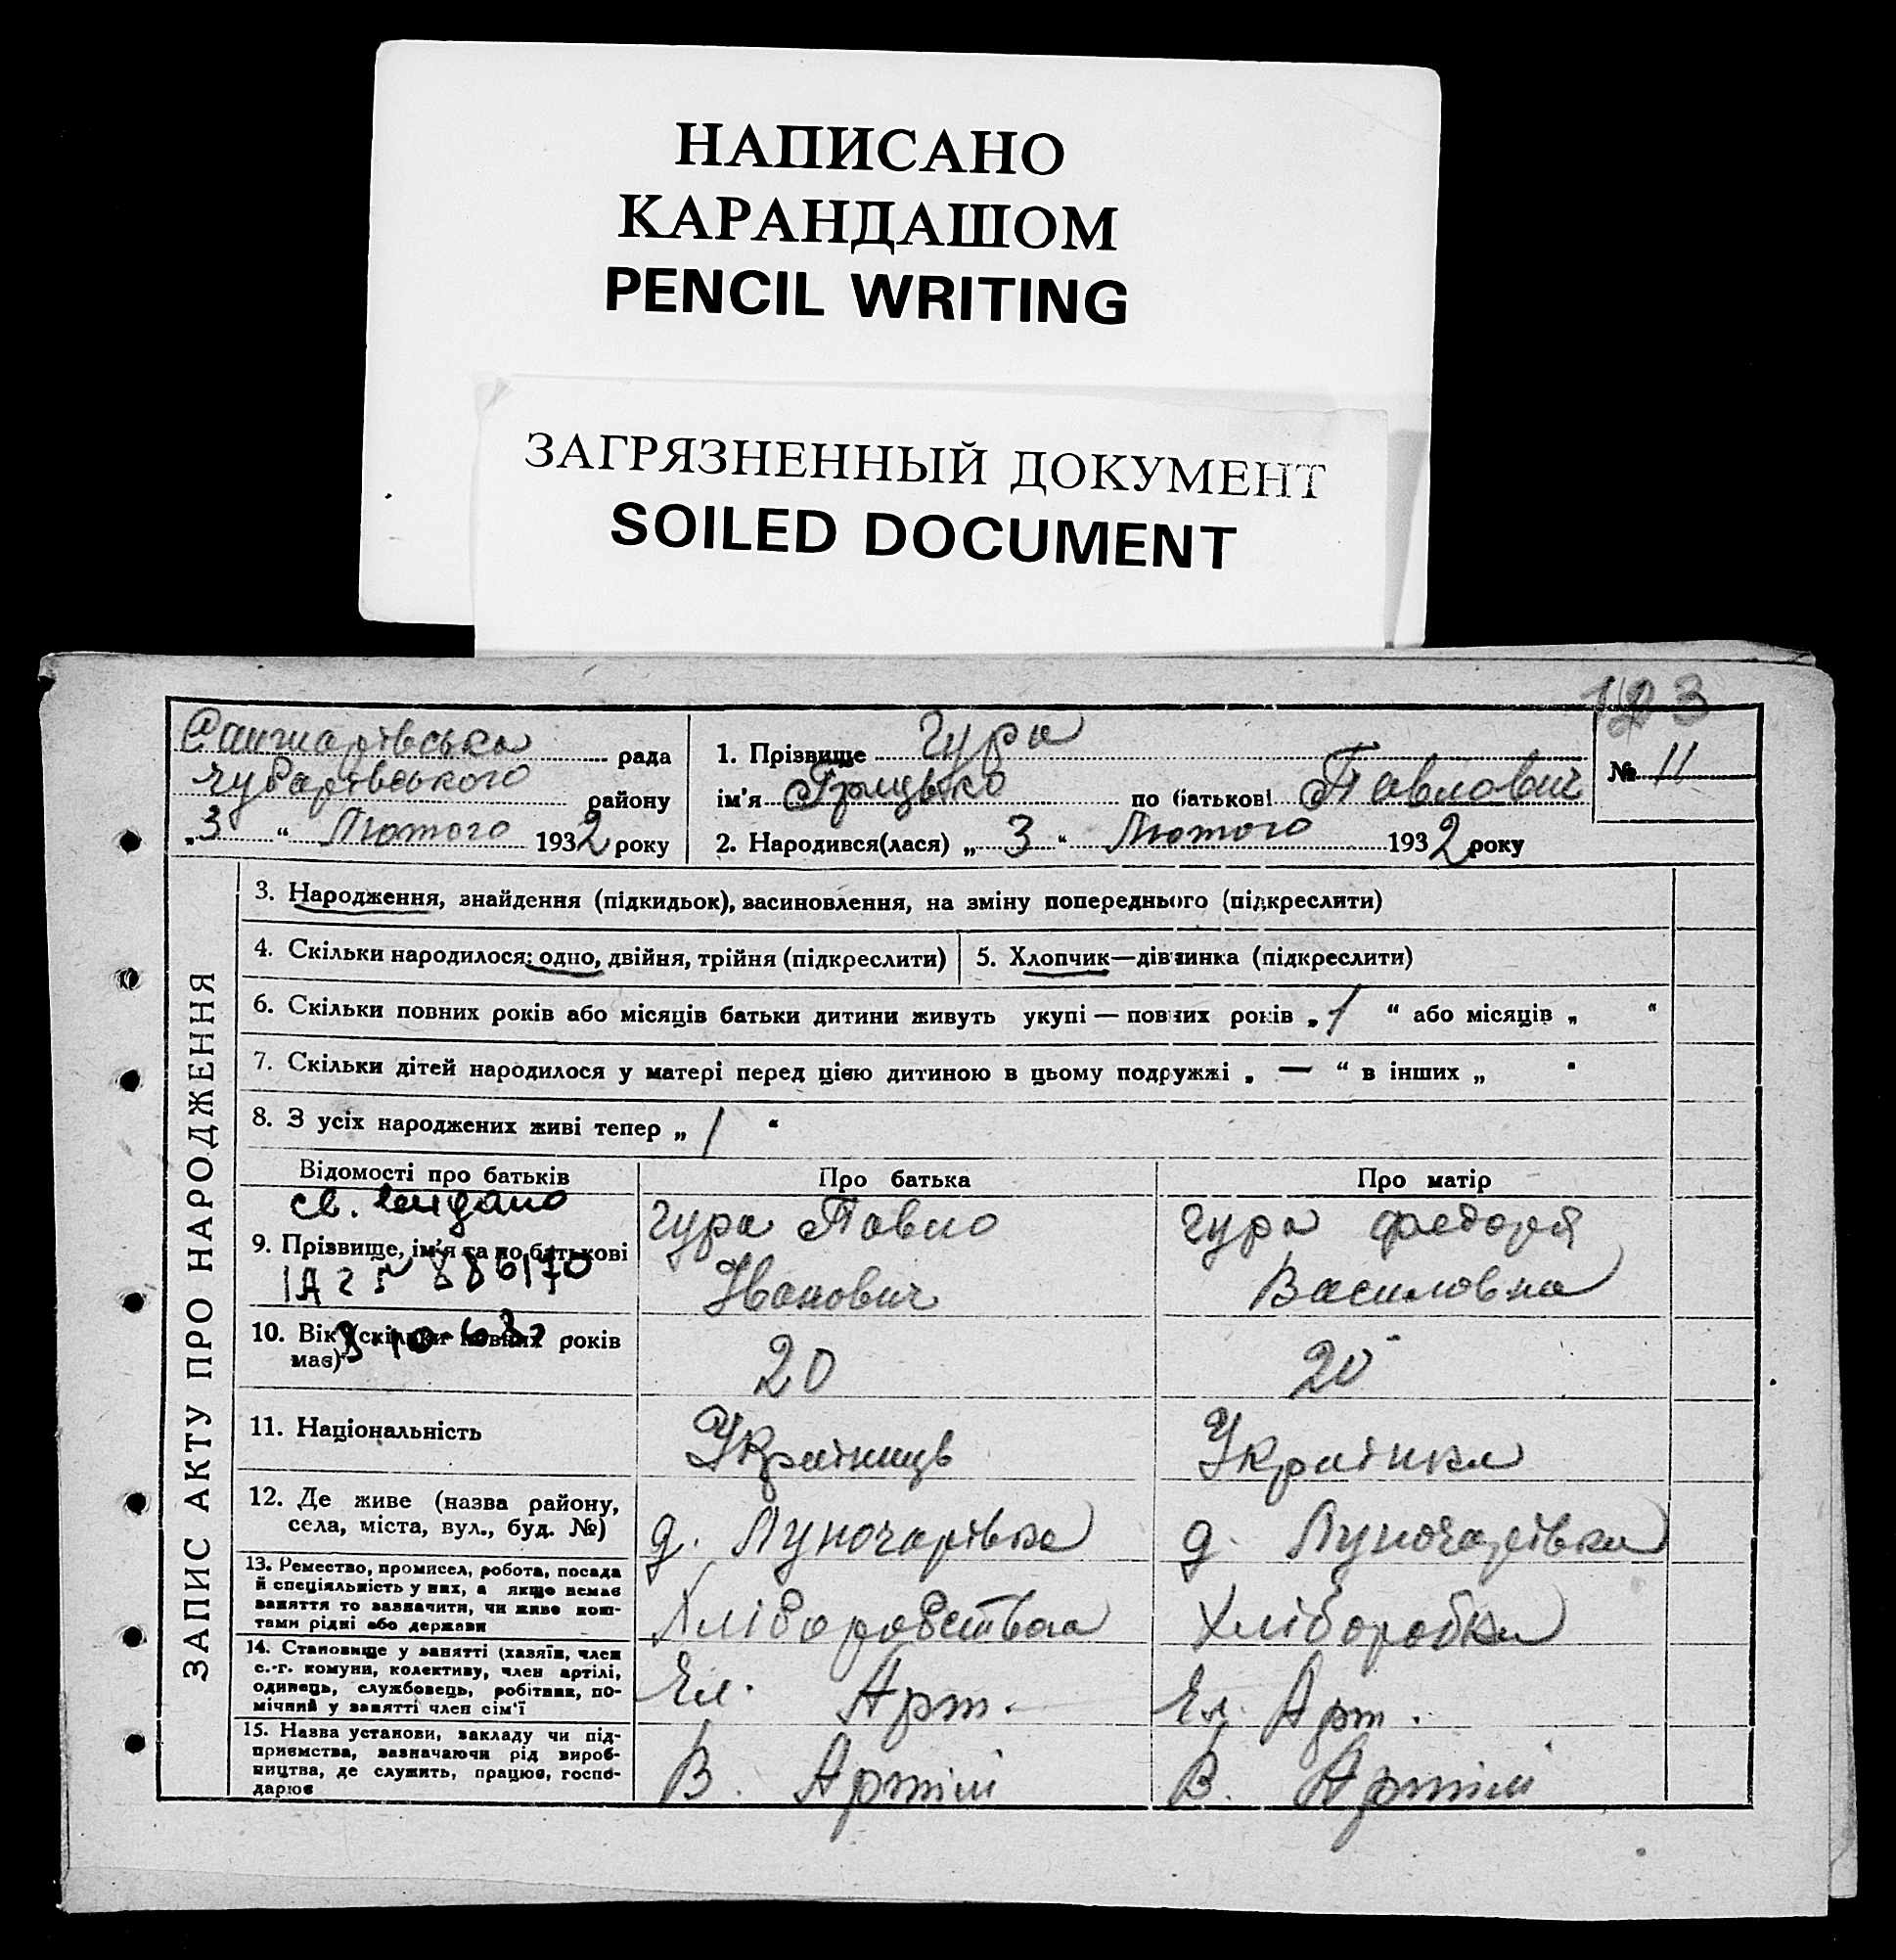 НАПИСАНО
КАРАНДАШОМ
PENCIL WRITING
ЗАГРЯЗНЕННЫЙ ДОКУМЕНТ
SOILED DOCUMENT
123
рада
Чубарівського району
„3“ Лютого 1932 року
1. Прізвище Гура
ім'я Грицько по батькові Павлович
2. Народився(лася) „3“ Лютого 1932 року
№ 11
ЗАПИС АКТУ ПРО НАРОДЖЕННЯ
3. Народження, знайдення (підкидьок), васиновлення, на зміну попереднього (підкреслити)
4. Скільки народилося: одно, двійня, трійня (підкреслити)
5. Хлопчик—дівчинка (підкреслити)
6. Скільки повних років або місяців батьки дитини живуть укупі — повних років „1“ або місяців „ “
7. Скільки дітей народилося у матері перед цією дитиною в цьому подружжі „—“ в інших „ “
8. З усіх народжених живі тепер „1“
Відомості про батьків
Про батька
Про матір
св.
9. Прізвище, ім'я та по батькові
Гура Павло
Іванович
Гура Федора
Василовна
10. Вік (скільки повних років
має)
20
20
11. Національність
Українець
Українка
12. Де живе (назва району,
села, міста, вул., буд. №)
д. Луночарівка
д. Луночарівка
13. Ремество, промисел, робота, посада
й спеціяльність у них, а якщо немає
заняття то зазначити, чи живе кош-
тами рідні або держави
Хлібороб
Хліборобка
14. Становище у занятті (хазяїн, член
с.-г. комуни, колективу, член артілі,
одинець, службовець, робітник, по-
мічний у занятті член сім'ї
Чл. Арт.
Чл. Арт.
15. Назва установи, закладу чи під-
приємства, зазначаючи рід вироб-
ництва, де служить, працює, госпо-
дарює
В. Артілі
В. Артілі